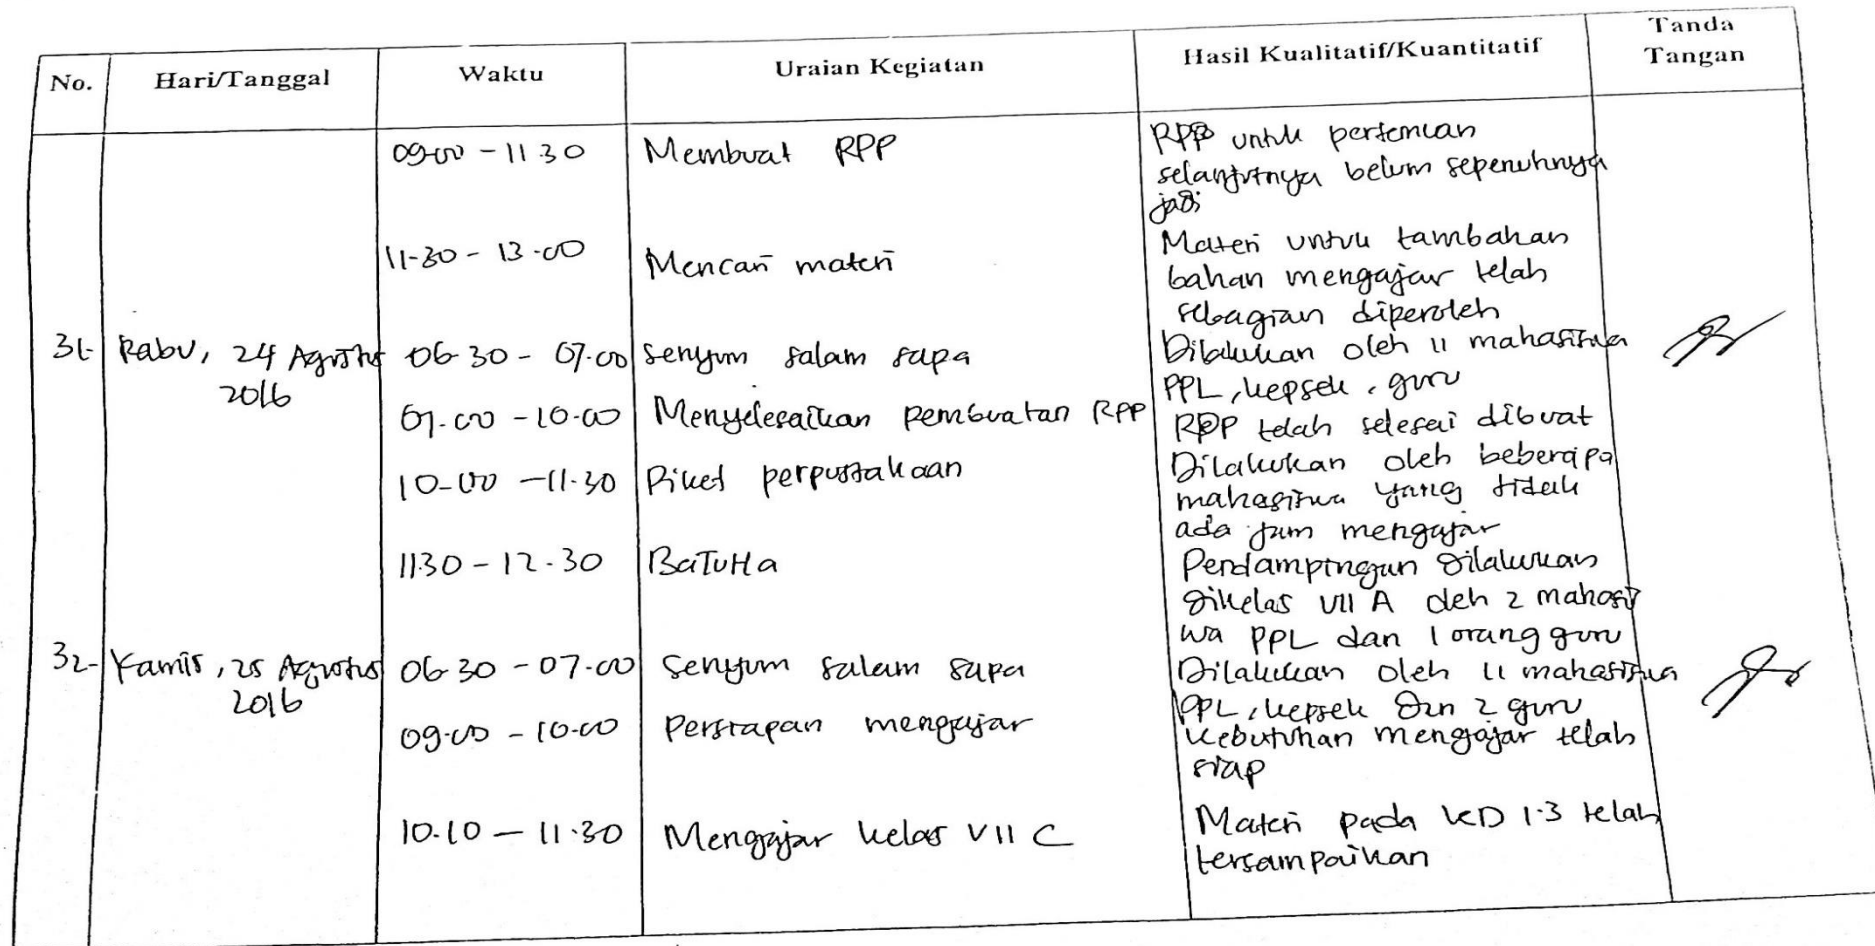 No. Hari/Tanggal Waktu Uraian Kegiatan Hasil Kualitatif/Kuantitatif Tanda
Tangan
09.00 - 11.30 Membuat RPP RPP untuk pertemuan
selanjutnya belum sepenuhnya
jadi
11.30 - 13.00 Mencari materi Materi untuk tambahan
bahan mengajar telah
sebagian diperoleh
31. Rabu, 24 Agustus 06.30 - 07.00 Senyum salam sapa Dilakukan oleh 11 mahasiswa
2016 PPL, kepsek, guru
07.00 - 10.00 Menyelesaikan pembuatan RPP RPP telah selesai dibuat
10.00 - 11.30 Piket perpustakaan Dilakukan oleh beberapa
mahasiswa yang tidak
ada jam mengajar
11.30 - 12.30 BaTuHa Pendampingan dilakukan
dikelas VII A oleh 2 mahasis
wa PPL dan 1 orang guru
32. Kamis, 25 Agustus 06.30 - 07.00 Senyum salam sapa Dilakukan oleh 11 mahasiswa
2016 PPL, kepsek dan 2 guru
09.00 - 10.00 Persiapan mengajar Kebutuhan mengajar telah
siap
10.10 - 11.30 Mengajar kelas VII C Materi pada KD 1.3 telah
tersampaikan